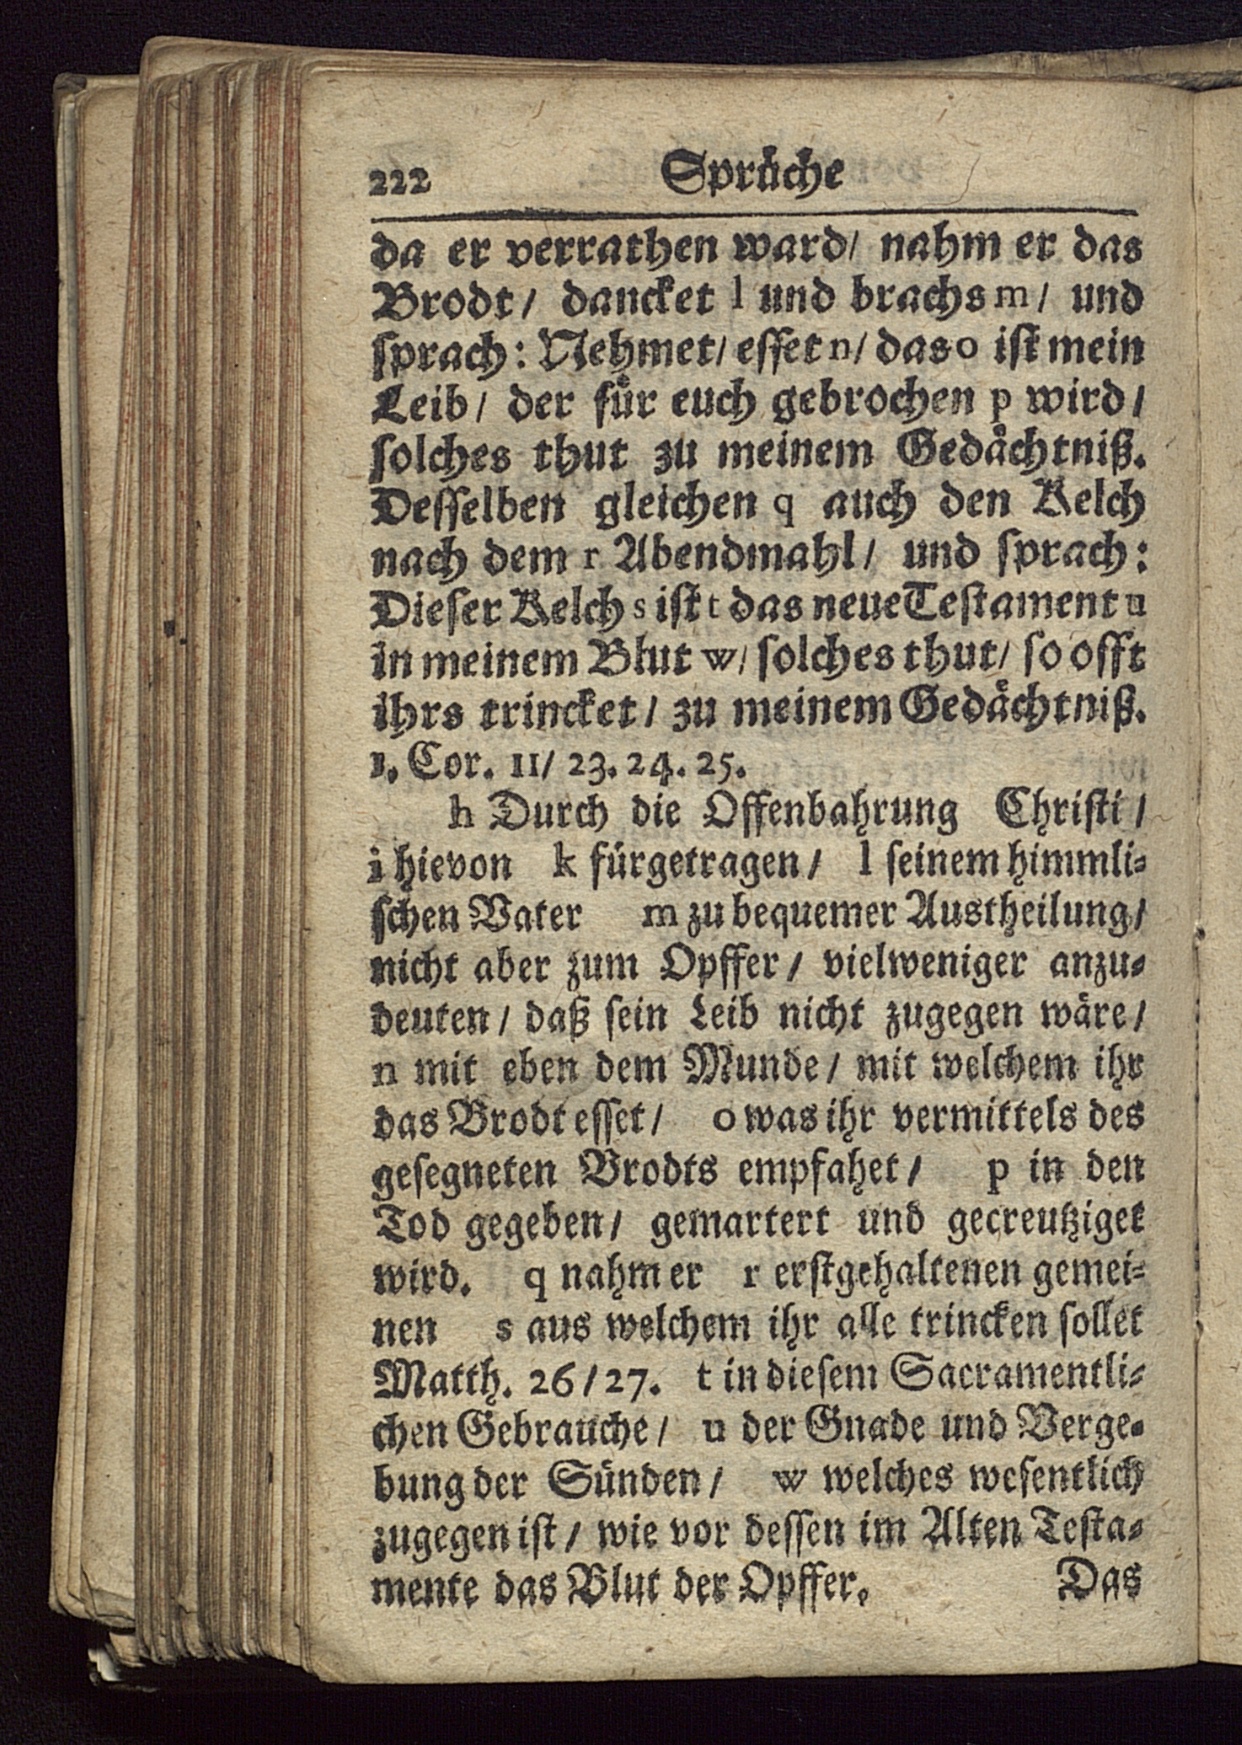 222 Sprüche
da er verrathen ward/ nahm er das
Brodt/ dancket l und brachs m/ und
sprach: Nehmet/ esset n/ das o ist mein
Leib/ der für euch gebrochen p wird/
solches thut zu meinem Gedächtniß.
Desselben gleichen q auch den Kelch
nach dem r Abendmahl/ und sprach:
Dieser Kelch s ist t das neue Testament u
in meinem Blut w/ solches thut/ so offt
ihrs trincket/ zu meinem Gedächtniß.
1. Cor. 11/ 23. 24. 25.
h Durch die Offenbahrung Christi/
i hievon k fürgetragen/ l seinem himmli-
schen Vater m zu bequemer Austheilung/
nicht aber zum Opffer/ vielweniger anzu-
deuten/ daß sein Leib nicht zugegen wäre/
n mit eben dem Munde/ mit welchem ihr
das Brodt esset/ o was ihr vermittels des
gesegneten Brodts empfahet/ p in den
Tod gegeben/ gemartert und gecreutziget
wird. q nahm er r erstgehaltenen gemei-
nen s aus welchem ihr alle trincken sollet
Matth. 26/27. t in diesem Sacramentli-
chen Gebrauche/ u der Gnade und Verge-
bung der Sünden/ w welches wesentlich
zugegen ist/ wie vor dessen im Alten Testa-
mente das Blut der Opffer. Das